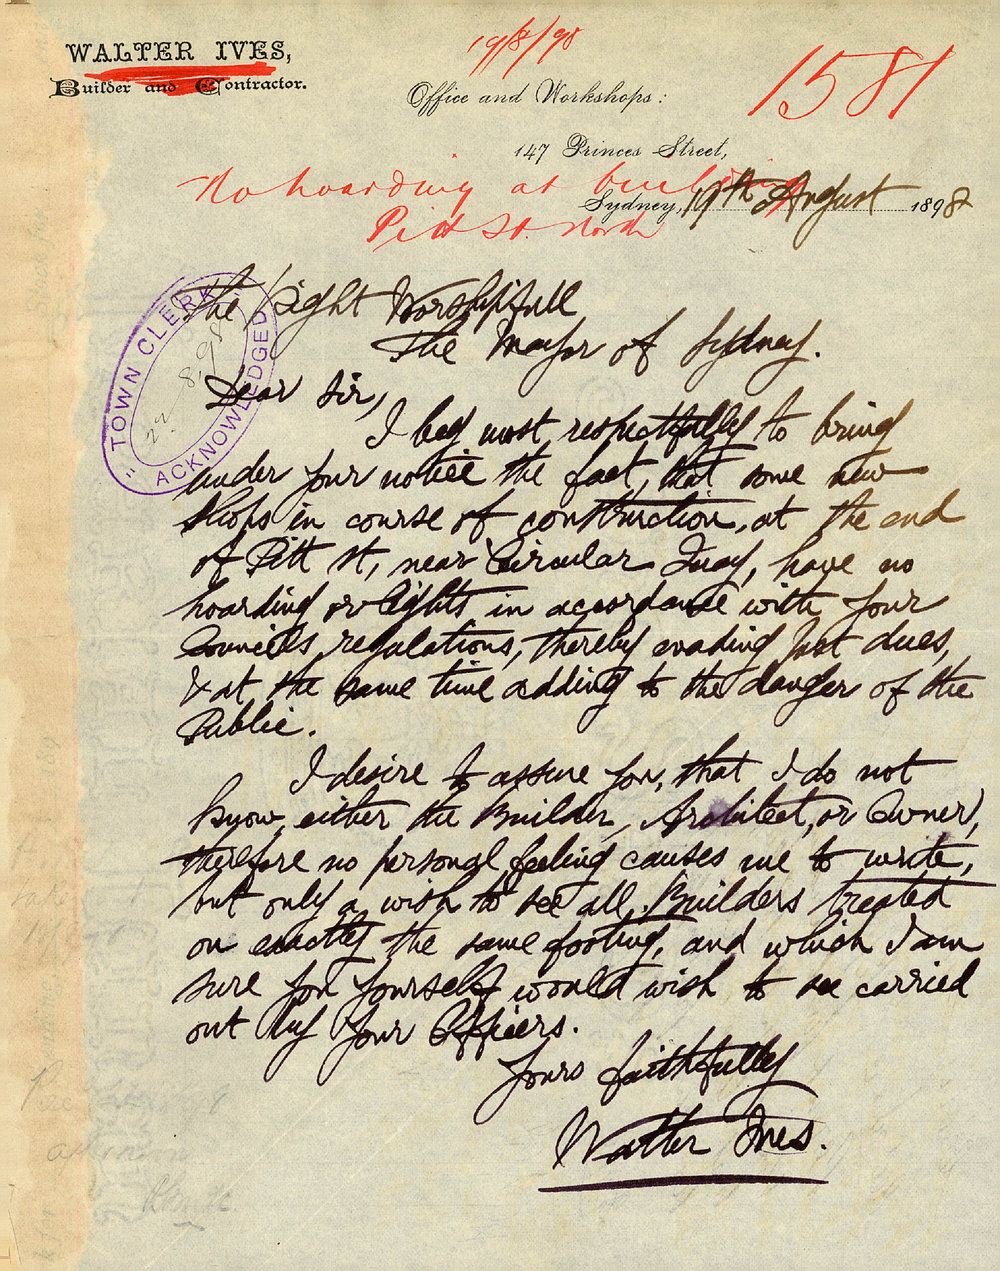 WALTER IVES,
Builder and Contractor.
19/8/98
1581
Office and Workshops:
147 Princes Street,
No hoarding at building
Pitt St. North
Sydney, 19th August 1898
The Right Worshipfull
The Mayor of Sydney.
TOWN CLERK
22.8.98
ACKNOWLEDGED
Dear Sir,
I beg most respectfully to bring
under your notice the fact, that some new
Shops in course of construction, at the end
of Pitt St, near Circular Quay, have no
hoarding or lights in accordance with your
Councils, regulations, thereby evading just dues,
& at the same time adding to the danger of the
Public.
I desire to assure you, that I do not
know, either the Builder, Architect, or Owner,
therefore no personal feeling causes me to write,
but only a wish to see all, Builders treated
on exactly the same footing, and which I am
sure you yourself would wish to see carried
out by your Officers.
Yours faithfully
Walter Ives.